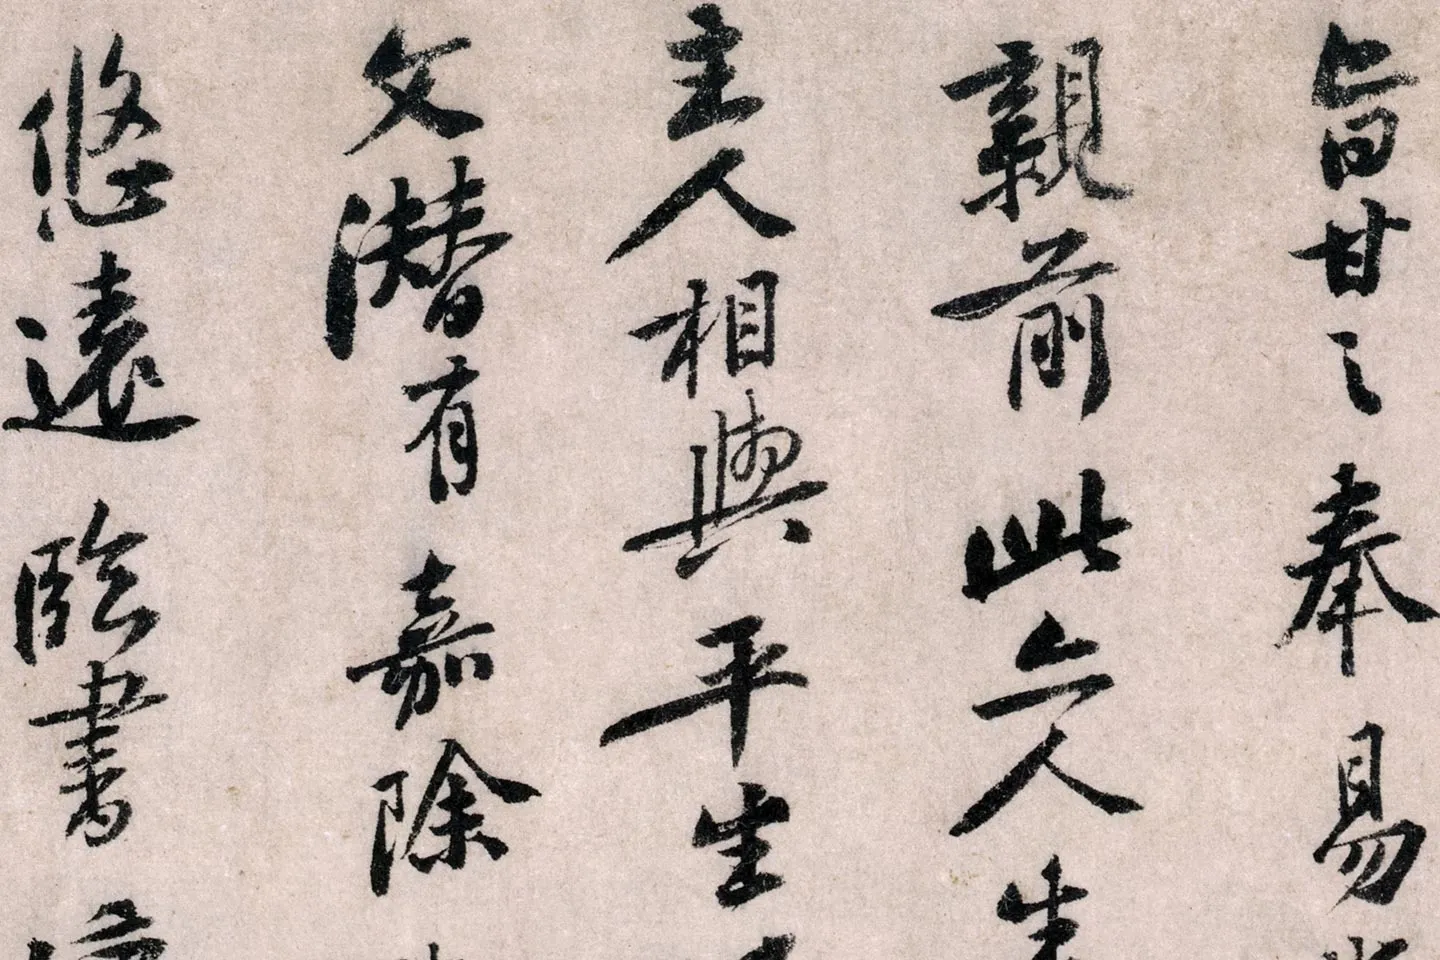 旨甘之奉易
親前此亦人生
主人相與平生
文潛有嘉除
悠遠臨書